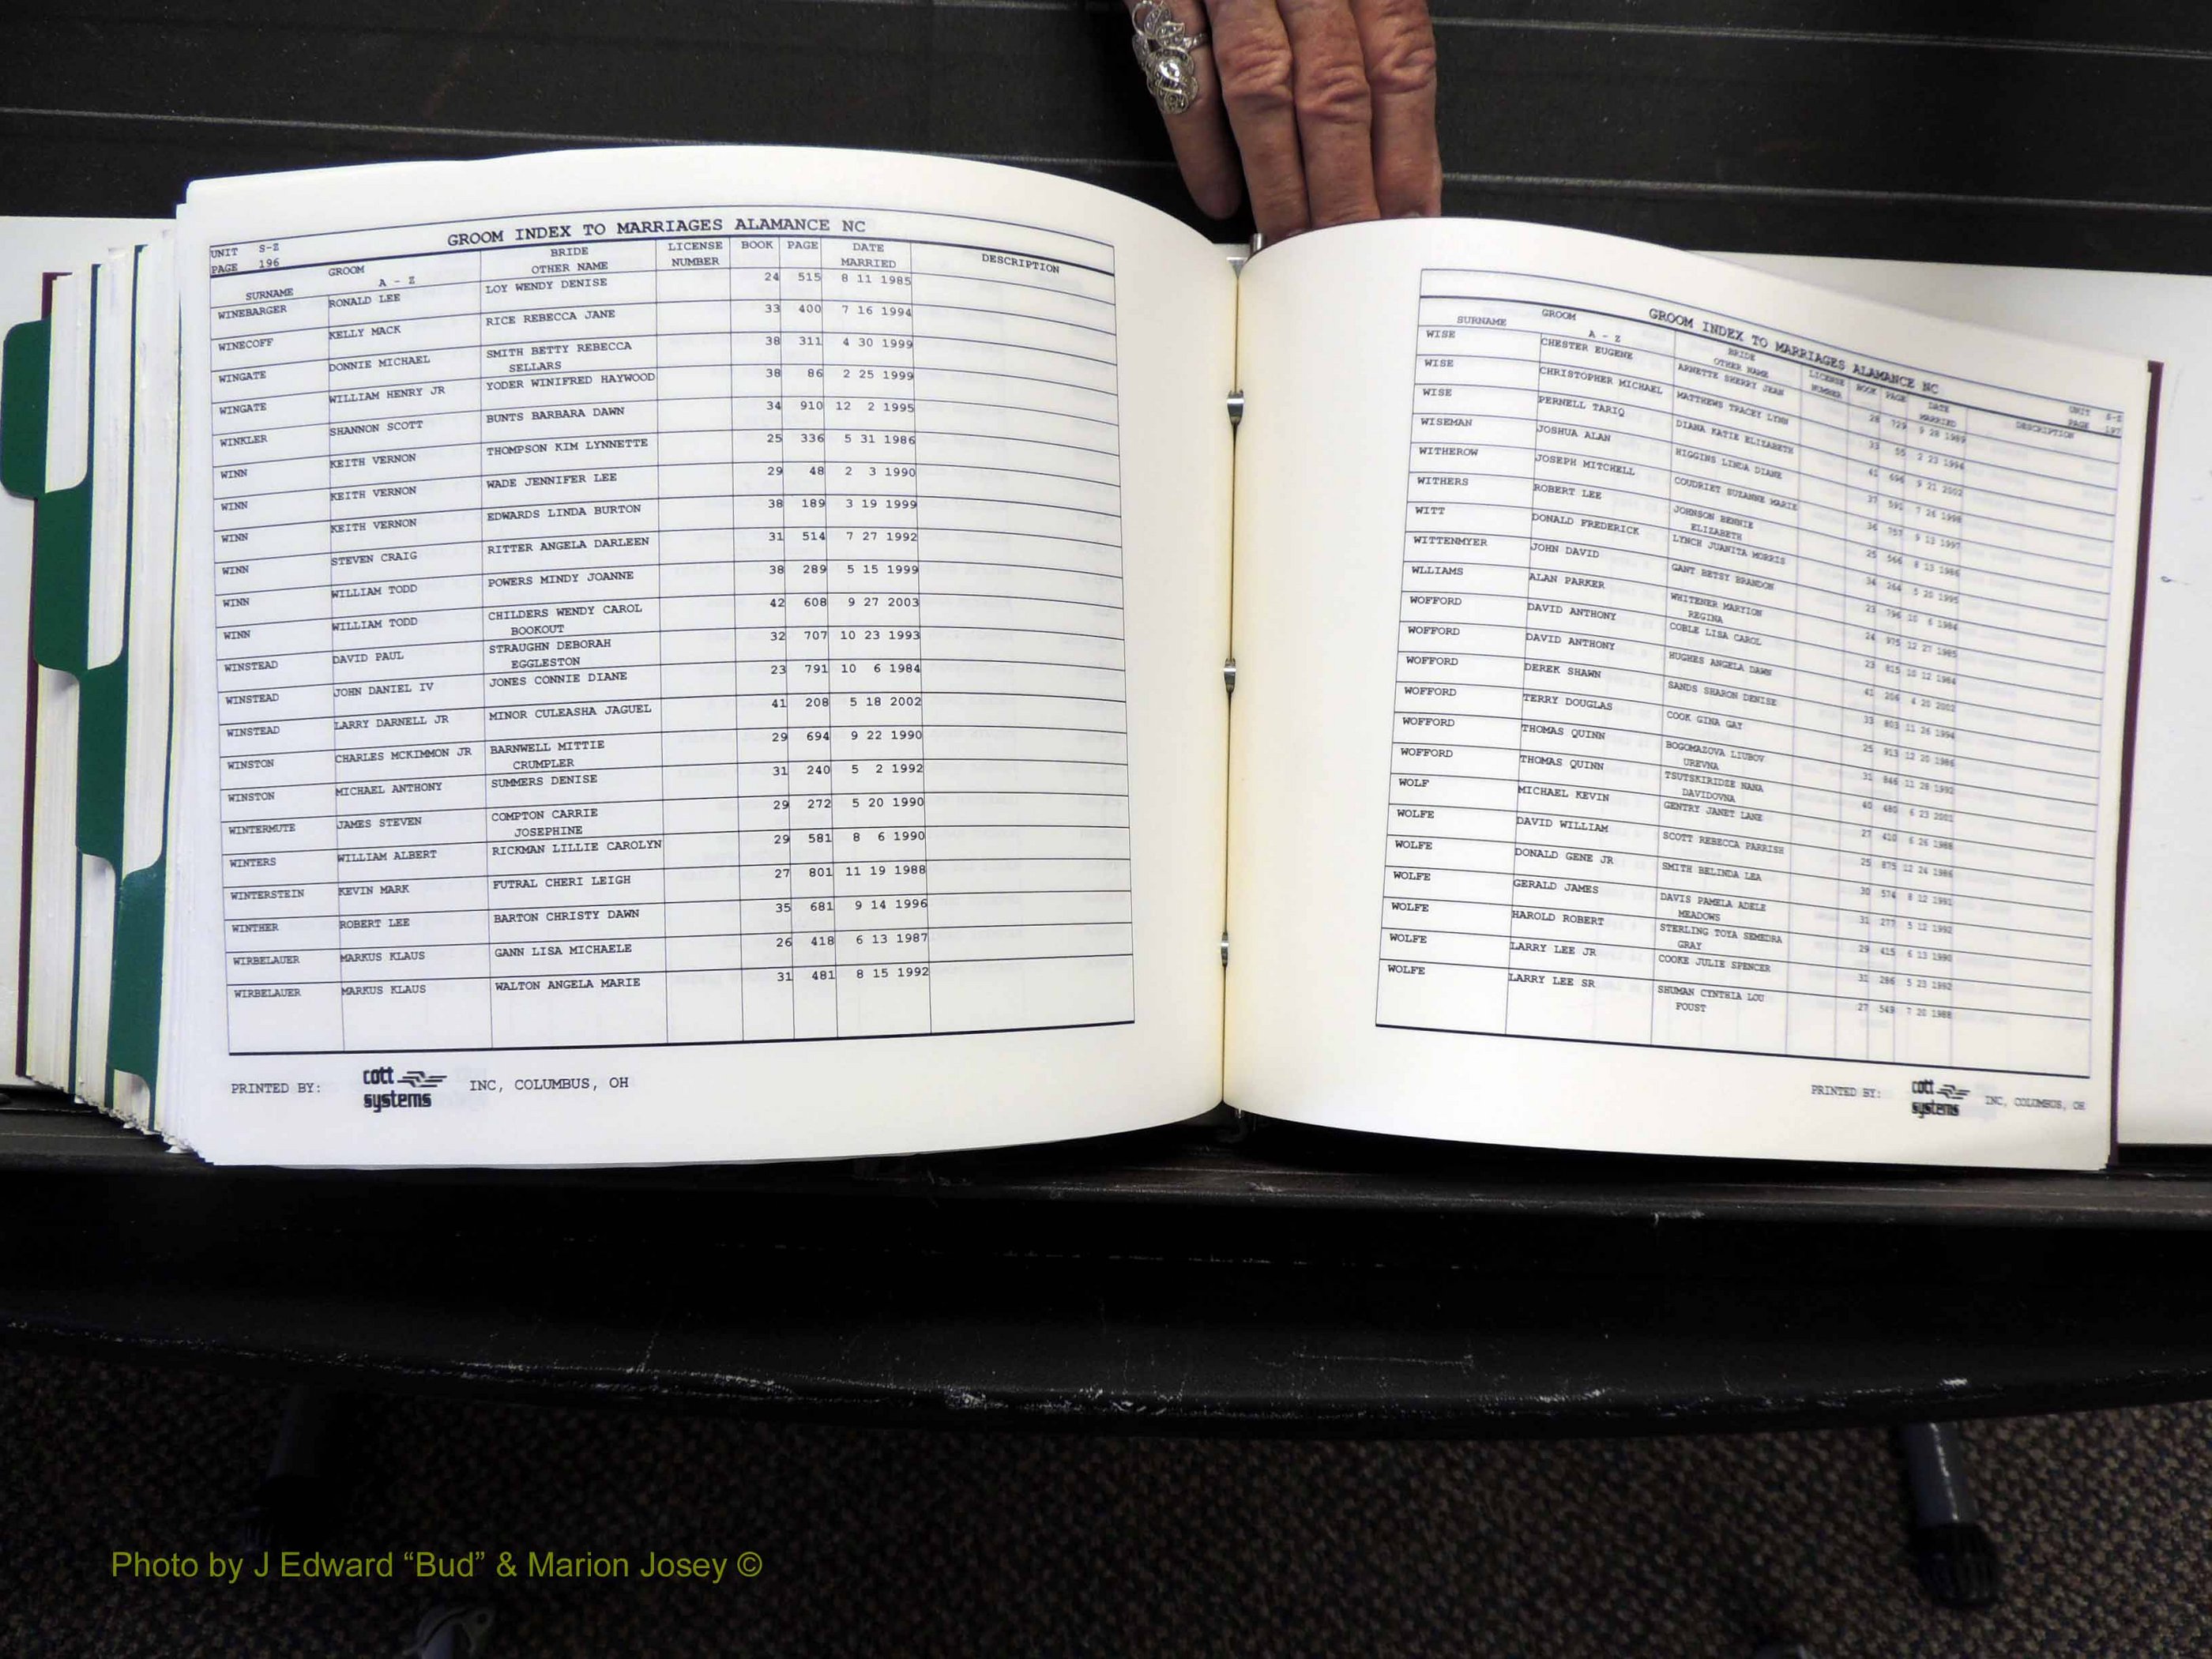 GROOM INDEX TO MARRIAGES ALAMANCE NC
UNIT S-Z
PAGE 196
SURNAME GROOM A - Z BRIDE OTHER NAME LICENSE NUMBER BOOK PAGE DATE MARRIED DESCRIPTION
WINEBARGER RONALD LEE LOY WENDY DENISE 24 515 8 11 1985
WINECOFF KELLY MACK RICE REBECCA JANE 33 400 7 16 1994
WINGATE DONNIE MICHAEL SMITH BETTY REBECCA 38 311 4 30 1999
SELLARS
WINGATE WILLIAM HENRY JR YODER WINIFRED HAYWOOD 38 86 2 25 1999
WINKLER SHANNON SCOTT BUNTS BARBARA DAWN 34 910 12 2 1995
WINN KEITH VERNON THOMPSON KIM LYNNETTE 25 336 5 31 1986
WINN KEITH VERNON WADE JENNIFER LEE 29 48 2 3 1990
WINN KEITH VERNON EDWARDS LINDA BURTON 38 189 3 19 1999
WINN STEVEN CRAIG RITTER ANGELA DARLEEN 31 514 7 27 1992
WINN WILLIAM TODD POWERS MINDY JOANNE 38 289 5 15 1999
WINN WILLIAM TODD CHILDERS WENDY CAROL 42 608 9 27 2003
BOOKOUT
WINSTEAD DAVID PAUL STRAUGHN DEBORAH 32 707 10 23 1993
EGGLESTON
WINSTEAD JOHN DANIEL IV JONES CONNIE DIANE 23 791 10 6 1984
WINSTEAD LARRY DARNELL JR MINOR CULEASHA JAGUEL 41 208 5 18 2002
WINSTON CHARLES MCKIMMON JR BARNWELL MITTIE 29 694 9 22 1990
CRUMPLER
WINSTON MICHAEL ANTHONY SUMMERS DENISE 31 240 5 2 1992
WINTERMUTE JAMES STEVEN COMPTON CARRIE 29 272 5 20 1990
JOSEPHINE
WINTERS WILLIAM ALBERT RICKMAN LILLIE CAROLYN 29 581 8 6 1990
WINTERSTEIN KEVIN MARK FUTRAL CHERI LEIGH 27 801 11 19 1988
WINTHER ROBERT LEE BARTON CHRISTY DAWN 35 681 9 14 1996
WIRBELAUER MARKUS KLAUS GANN LISA MICHAELE 26 418 6 13 1987
WIRBELAUER MARKUS KLAUS WALTON ANGELA MARIE 31 481 8 15 1992
PRINTED BY: cott systems INC, COLUMBUS, OH
GROOM INDEX TO MARRIAGES ALAMANCE NC
UNIT S-Z
PAGE 197
SURNAME GROOM A - Z BRIDE OTHER NAME LICENSE NUMBER BOOK PAGE DATE MARRIED DESCRIPTION
WISE CHESTER EUGENE ARNETTE SHERRY JEAN 28 729 9 28 1989
WISE CHRISTOPHER MICHAEL MATTHEWS TRACEY LYNN 33 55 2 23 1994
WISE PERNELL TARIQ DIANA KATIE ELIZABETH 41 696 9 21 2002
WISEMAN JOSHUA ALAN HIGGINS LINDA DIANE 37 591 7 26 1998
WITHEROW JOSEPH MITCHELL COUDRIET SUZANNE MARIE 36 757 9 13 1997
WITHERS ROBERT LEE JOHNSON BENNIE 25 566 8 13 1986
ELIZABETH
WITT DONALD FREDERICK LYNCH JUANITA MORRIS 34 264 5 20 1995
WITTENMYER JOHN DAVID GANT BETSY BRANDON 23 796 10 6 1984
WLLIAMS ALAN PARKER WHITENER MARYION 24 975 12 27 1985
REGINA
WOFFORD DAVID ANTHONY COBLE LISA CAROL 23 815 10 12 1984
WOFFORD DAVID ANTHONY HUGHES ANGELA DAWN 41 206 4 20 2002
WOFFORD DEREK SHAWN SANDS SHARON DENISE 33 803 11 26 1994
WOFFORD TERRY DOUGLAS COOK GINA GAY 25 913 12 20 1986
WOFFORD THOMAS QUINN BOGOMAZOVA LIUBOV 31 846 11 28 1992
UREVNA
WOFFORD THOMAS QUINN TSUTSKIRIDZE NANA 40 480 6 23 2001
DAVIDOVNA
WOLF MICHAEL KEVIN GENTRY JANET LANE 27 410 6 26 1988
WOLFE DAVID WILLIAM SCOTT REBECCA PARRISH 25 875 12 24 1986
WOLFE DONALD GENE JR SMITH BELINDA LEA 30 574 8 12 1991
WOLFE GERALD JAMES DAVIS PAMELA ADELE 31 277 5 12 1992
MEADOWS
WOLFE HAROLD ROBERT STERLING TOYA SEMEDRA 29 415 6 13 1990
GRAY
WOLFE LARRY LEE JR COOKE JULIE SPENCER 31 286 5 23 1992
WOLFE LARRY LEE SR SHUMAN CYNTHIA LOU 27 549 7 20 1988
FOUST
PRINTED BY: cott systems INC, COLUMBUS, OH
Photo by J Edward “Bud” & Marion Josey ©